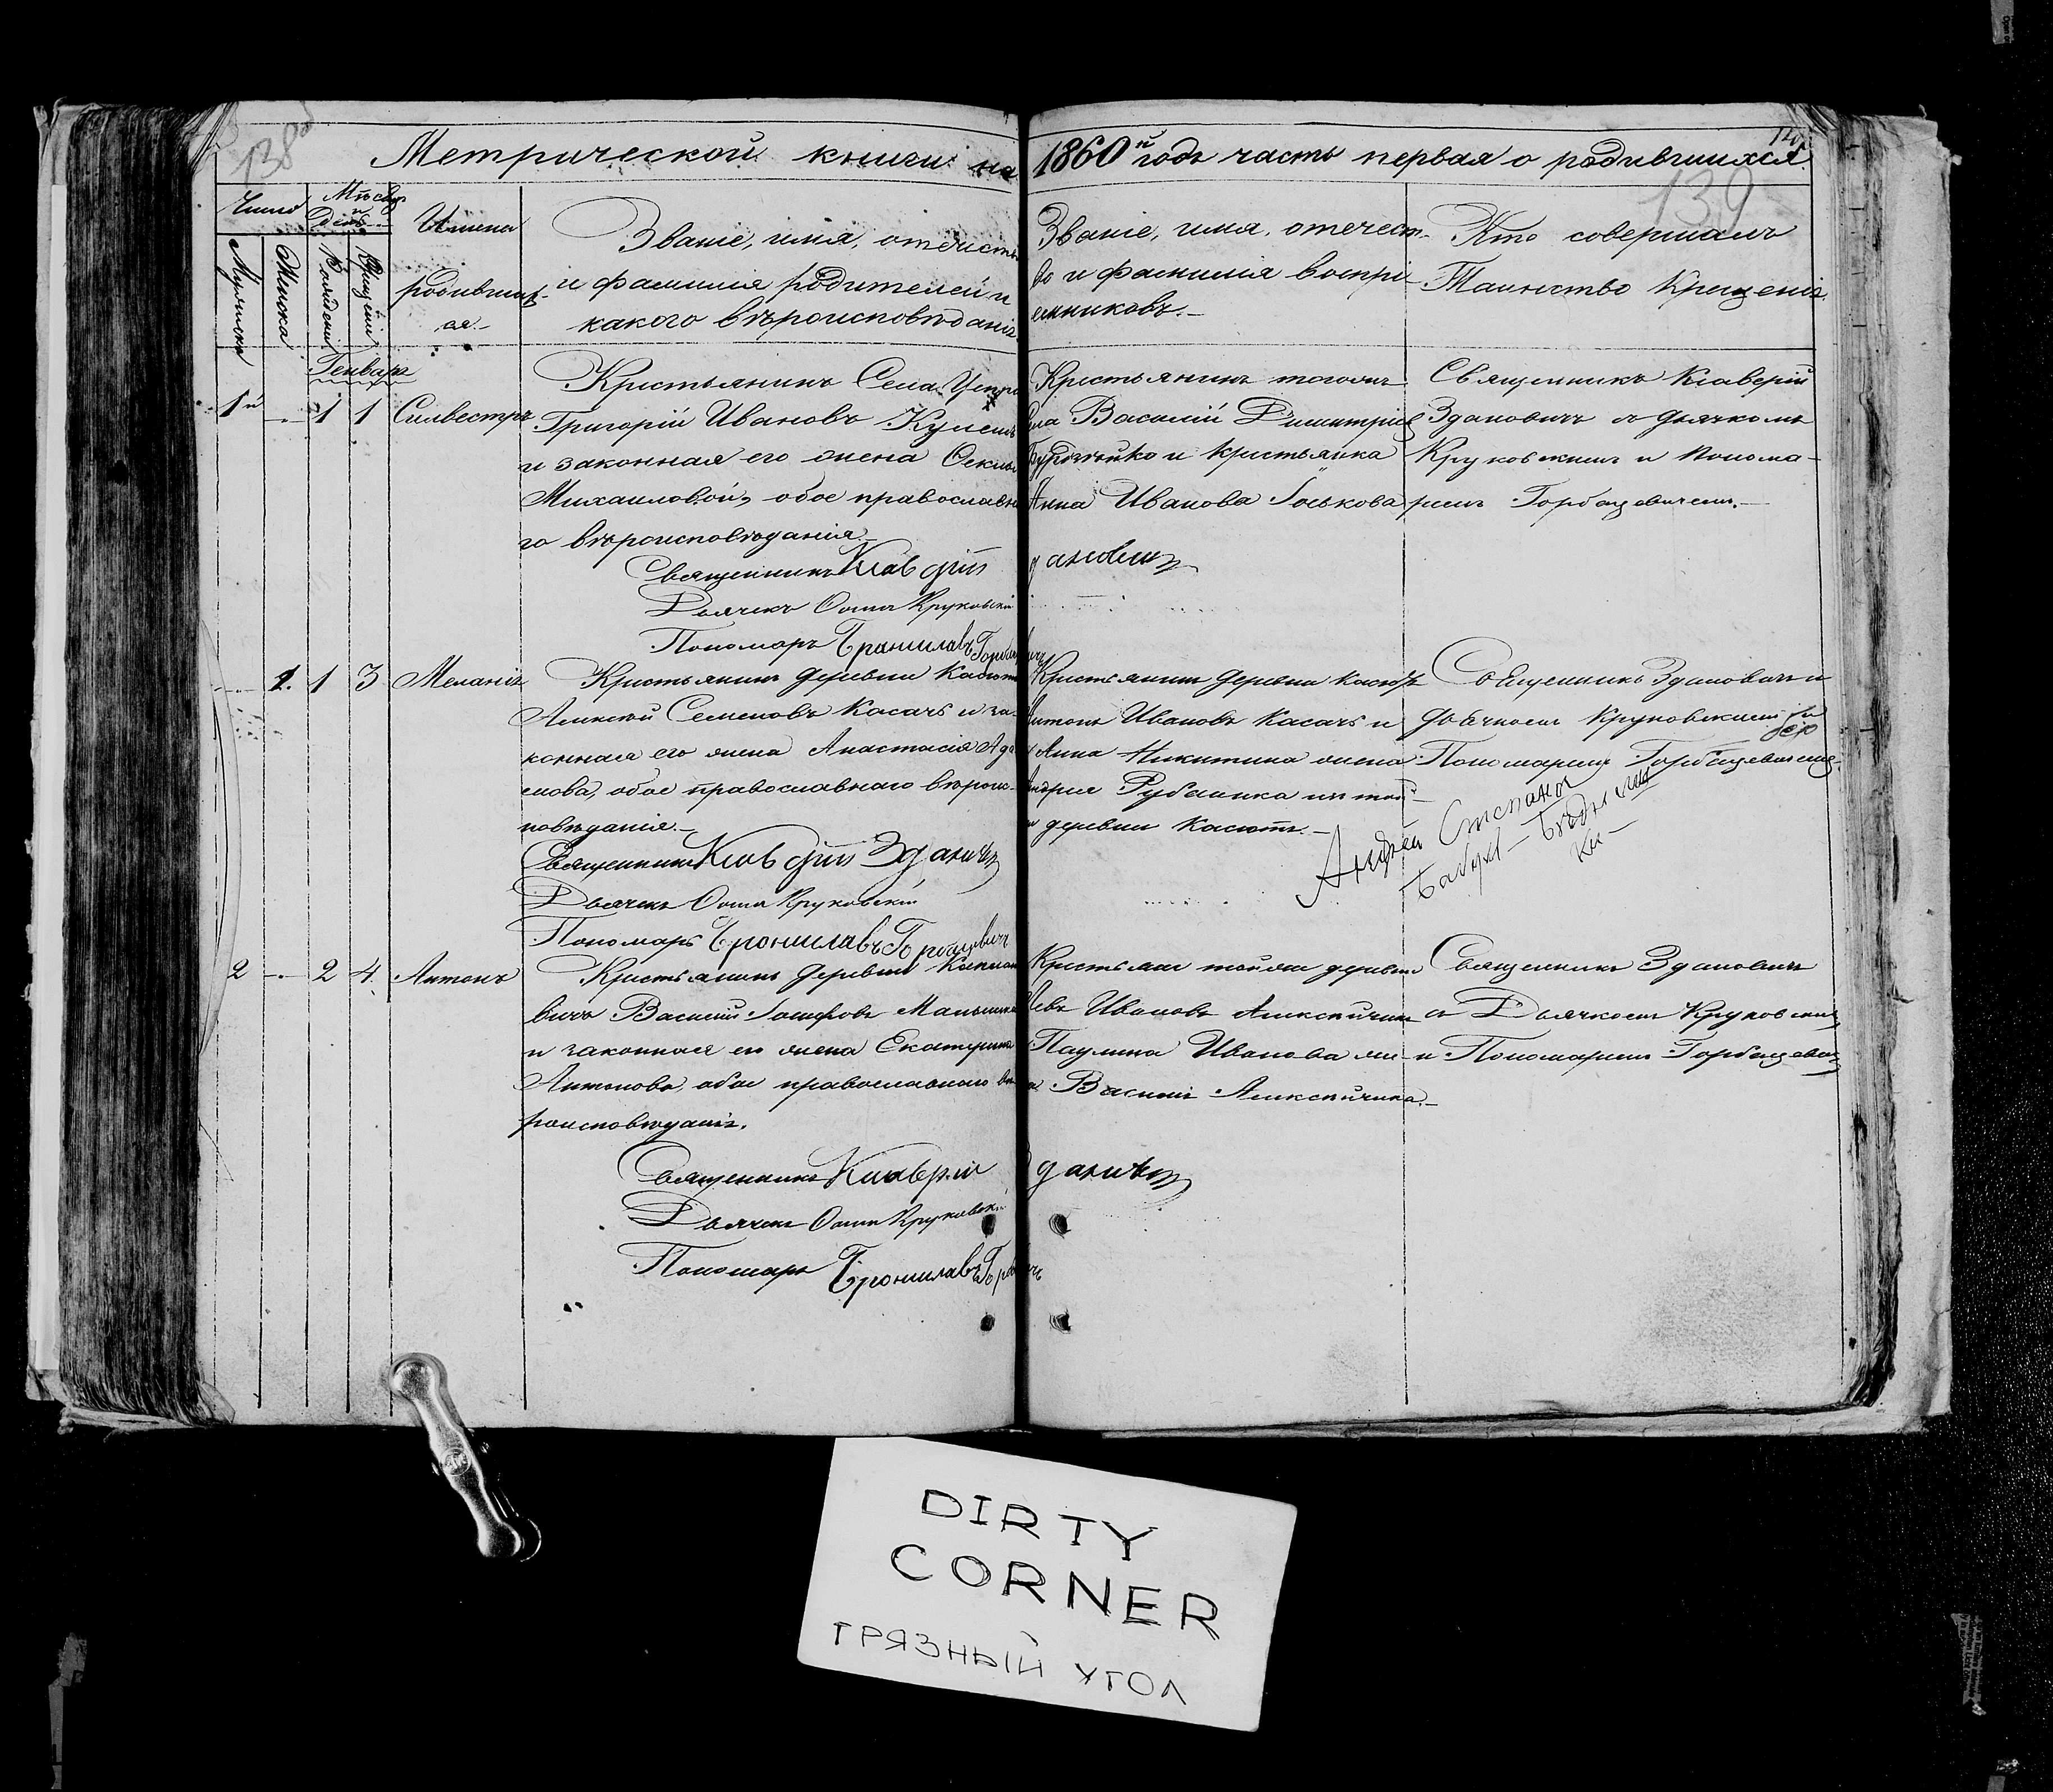 138
140
139
Метрической книги на 1860й годъ часть первая о родившихся
Число
Мѣсяцъ и День
Имена родивших-
ая.
Званіе, имя, отчество
и фамилія родителей и
какого вѣроисповѣданія
Званіе, имя, отечест-
во и фамилія воспрі-
емниковъ.
Кто совершалъ
Таинство Крещенія
Мужеска
Женска
Рожденія
Крещенія
Генварь
1й 1 1 Силвестръ
Крестьянинъ Села
Григорій Ивановъ
и законная его жена
Михаиловой, обое православна
го вѣроисповѣданія
Священникъ Ксаверій Здановичъ
Дьячекъ Осипъ Круковскій
Пономарь Брониславъ Горбацевичъ
Крестьянинъ тогожъ
Села Василій Димитріев
и крестьянка
Анна Иванова
Священникъ Ксаверій
Здановичъ съ дьячкомъ
Круковскимъ и понома-
ремъ Горбацевичемъ.
1. 1 3 Меланія
Крестьянинъ деревни Касютъ
Алексѣй Семеновъ Касачъ и за-
конная его жена Анастасія Ада
мова, обое православнаго вѣроис-
повѣданія.
Священникъ Ксаверій Здановичъ
Дьячекъ Осипъ Круковскій
Пономарь Брониславъ Горбацевичъ
Крестьянинъ деревни Касютъ
Антонъ Ивановъ Касачъ и
Анна Никитина жена
Андрея Рубаника изъ той-
деревни Касютъ.
Священникъ Здановичъ и
дьячкомъ Круковскимъ
Пономаремъ Горбацевичемъ.
Андрей Степанъ
2 2 4. Антонъ
Крестьянинъ деревни
вичъ Василій Іосифовъ
и законная его жена Екатерина
Антонова, обое православнаго вѣ
роисповѣданія.
Священникъ Ксаверій Здановичъ
Дьячекъ Осипъ Круковскій
Пономарь Брониславъ Горбацевичъ
Крестьяне тойже деревни
Левъ Ивановъ
Паулина Иванова же-
на Василія
Священникъ Здановичъ
съ Дьячкомъ Круковским
и Пономаремъ Горбацевич
DIRTY
CORNER
ГРЯЗНЫЙ УГОЛ